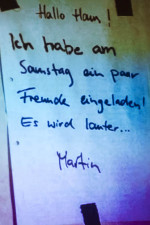 Hallo Haus!
Ich habe am
Samstag ein paar
Freunde eingeladen!
Es wird lauter...
Martin